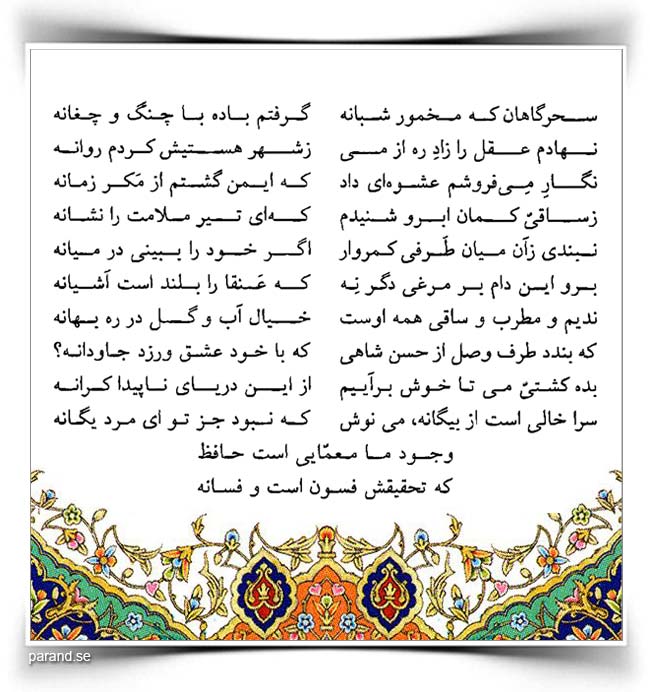 سحرگاهان که مخمور شبانه گرفتم باده با چنگ و چغانه
نهادم عقل را زادِ ره از می زشهر هستیش کردم روانه
نگارِ مِی‌فروشم عشوه‌ای داد که ایمن گشتم از مَکر زمانه
زساقیّ کمان ابرو شنیدم که‌ای تیرِ ملامت را نشانه
نبندی زآن میان طَرفی کمروار اگر خود را ببینی در میانه
برو این دام بر مرغی دگر نِه که عَنقا را بلند است آشیانه
ندیم و مطرب و ساقی همه اوست خیال آب و گل در ره بهانه
که بندد طرف وصل از حسن شاهی که با خود عشق ورزد جاودانه؟
بده کشتیّ می تا خوش برآییم از این دریای ناپیدا کرانه
سرا خالی است از بیگانه، می نوش که نبود جز تو ای مرد یگانه
وجود ما معمّایی است حافظ
که تحقیقش فسون است و فسانه
parand.se